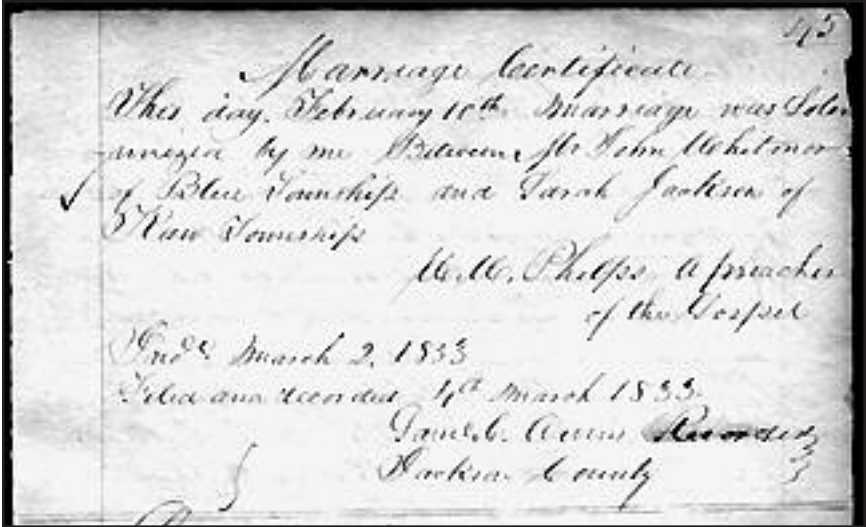 43
Marriage Certificate
This day, February 10th Marriage was Solem
annized by me Between Mr John Whitmor
of Blue Township and Sarah Jackson of
Kaw Township
W. W. Phelps, A preacher
of the Gospel
March 2, 1833
Filed and recorded 4th March 1833
Saml C. Owens Recorder
Jackson County